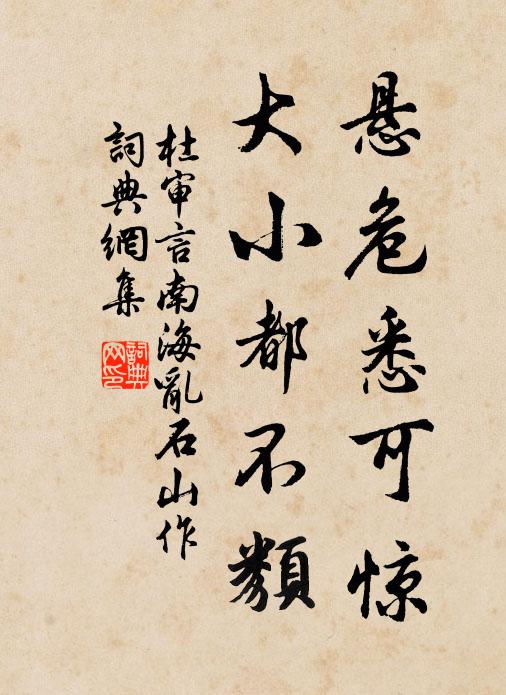 悬危悉可惊
大小都不類
杜审言南海亂石山作
詞典網集
詞典網印